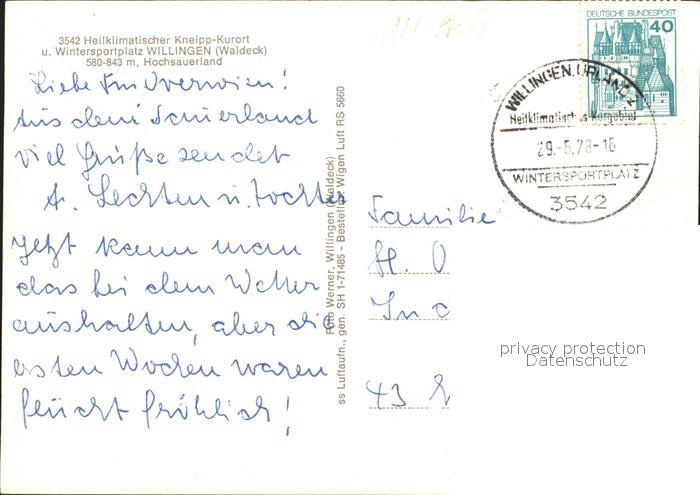 3542 Heilklimatischer Kneipp-Kurort
u. Wintersportplatz WILLINGEN (Waldeck)
580-843 m, Hochsauerland
Liebe
Aus dem Sauerland
viel Grüße sendet
A. Lechten u. Tochter
Jetzt kann man
das bei dem Wetter
aushalten, aber die
ersten Wochen waren
feucht fröhlich!
Foto Werner, Willingen (Waldeck)
ss Luftaufn., gen. SH 1-71485 - Bestellnr. Wigen Luft RS 5660
DEUTSCHE BUNDESPOST
40
WILLINGEN, UPLAND
Heilklimatisches Kurgebiet
29.-5.78-16
WINTERSPORTPLATZ
3542
Familie
H. O
In d
43 E
privacy protection
Datenschutz